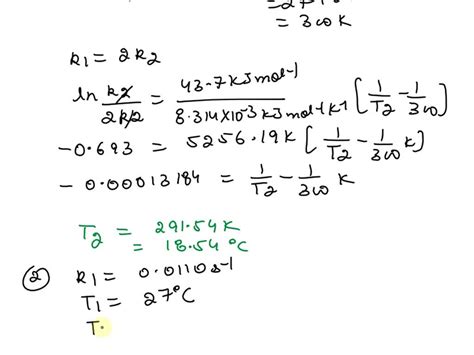 = 300K
k1 = 2k2
ln k2/2k2 = 43.7 kJ mol-1/8.314×10-3 kJ mol-1 K-1 [1/T2 - 1/300]
-0.693 = 5256.19K [1/T2 - 1/300 K]
- 0.00013184 = 1/T2 - 1/300 K
T2 = 291.54K
= 18.54 °C
② k1 = 0.0110 s-1
T1 = 27°C
T